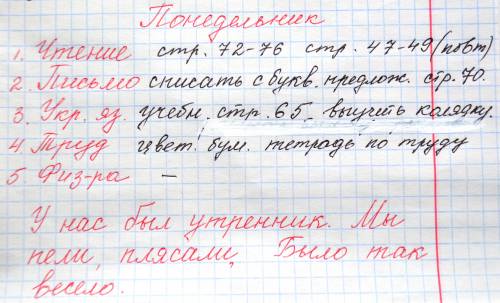 Понедельник
1. Чтение стр. 72-76 стр. 47-49 (повт)
2. Письмо списать с букв. предлож. стр. 70.
3. Укр. яз. учебн. стр. 65 - выучить калядку.
4 Труд цвет. бум. тетрадь по труду
5 Физ-ра —
У нас был утренник. Мы
пели, плясали, Было так
весело.